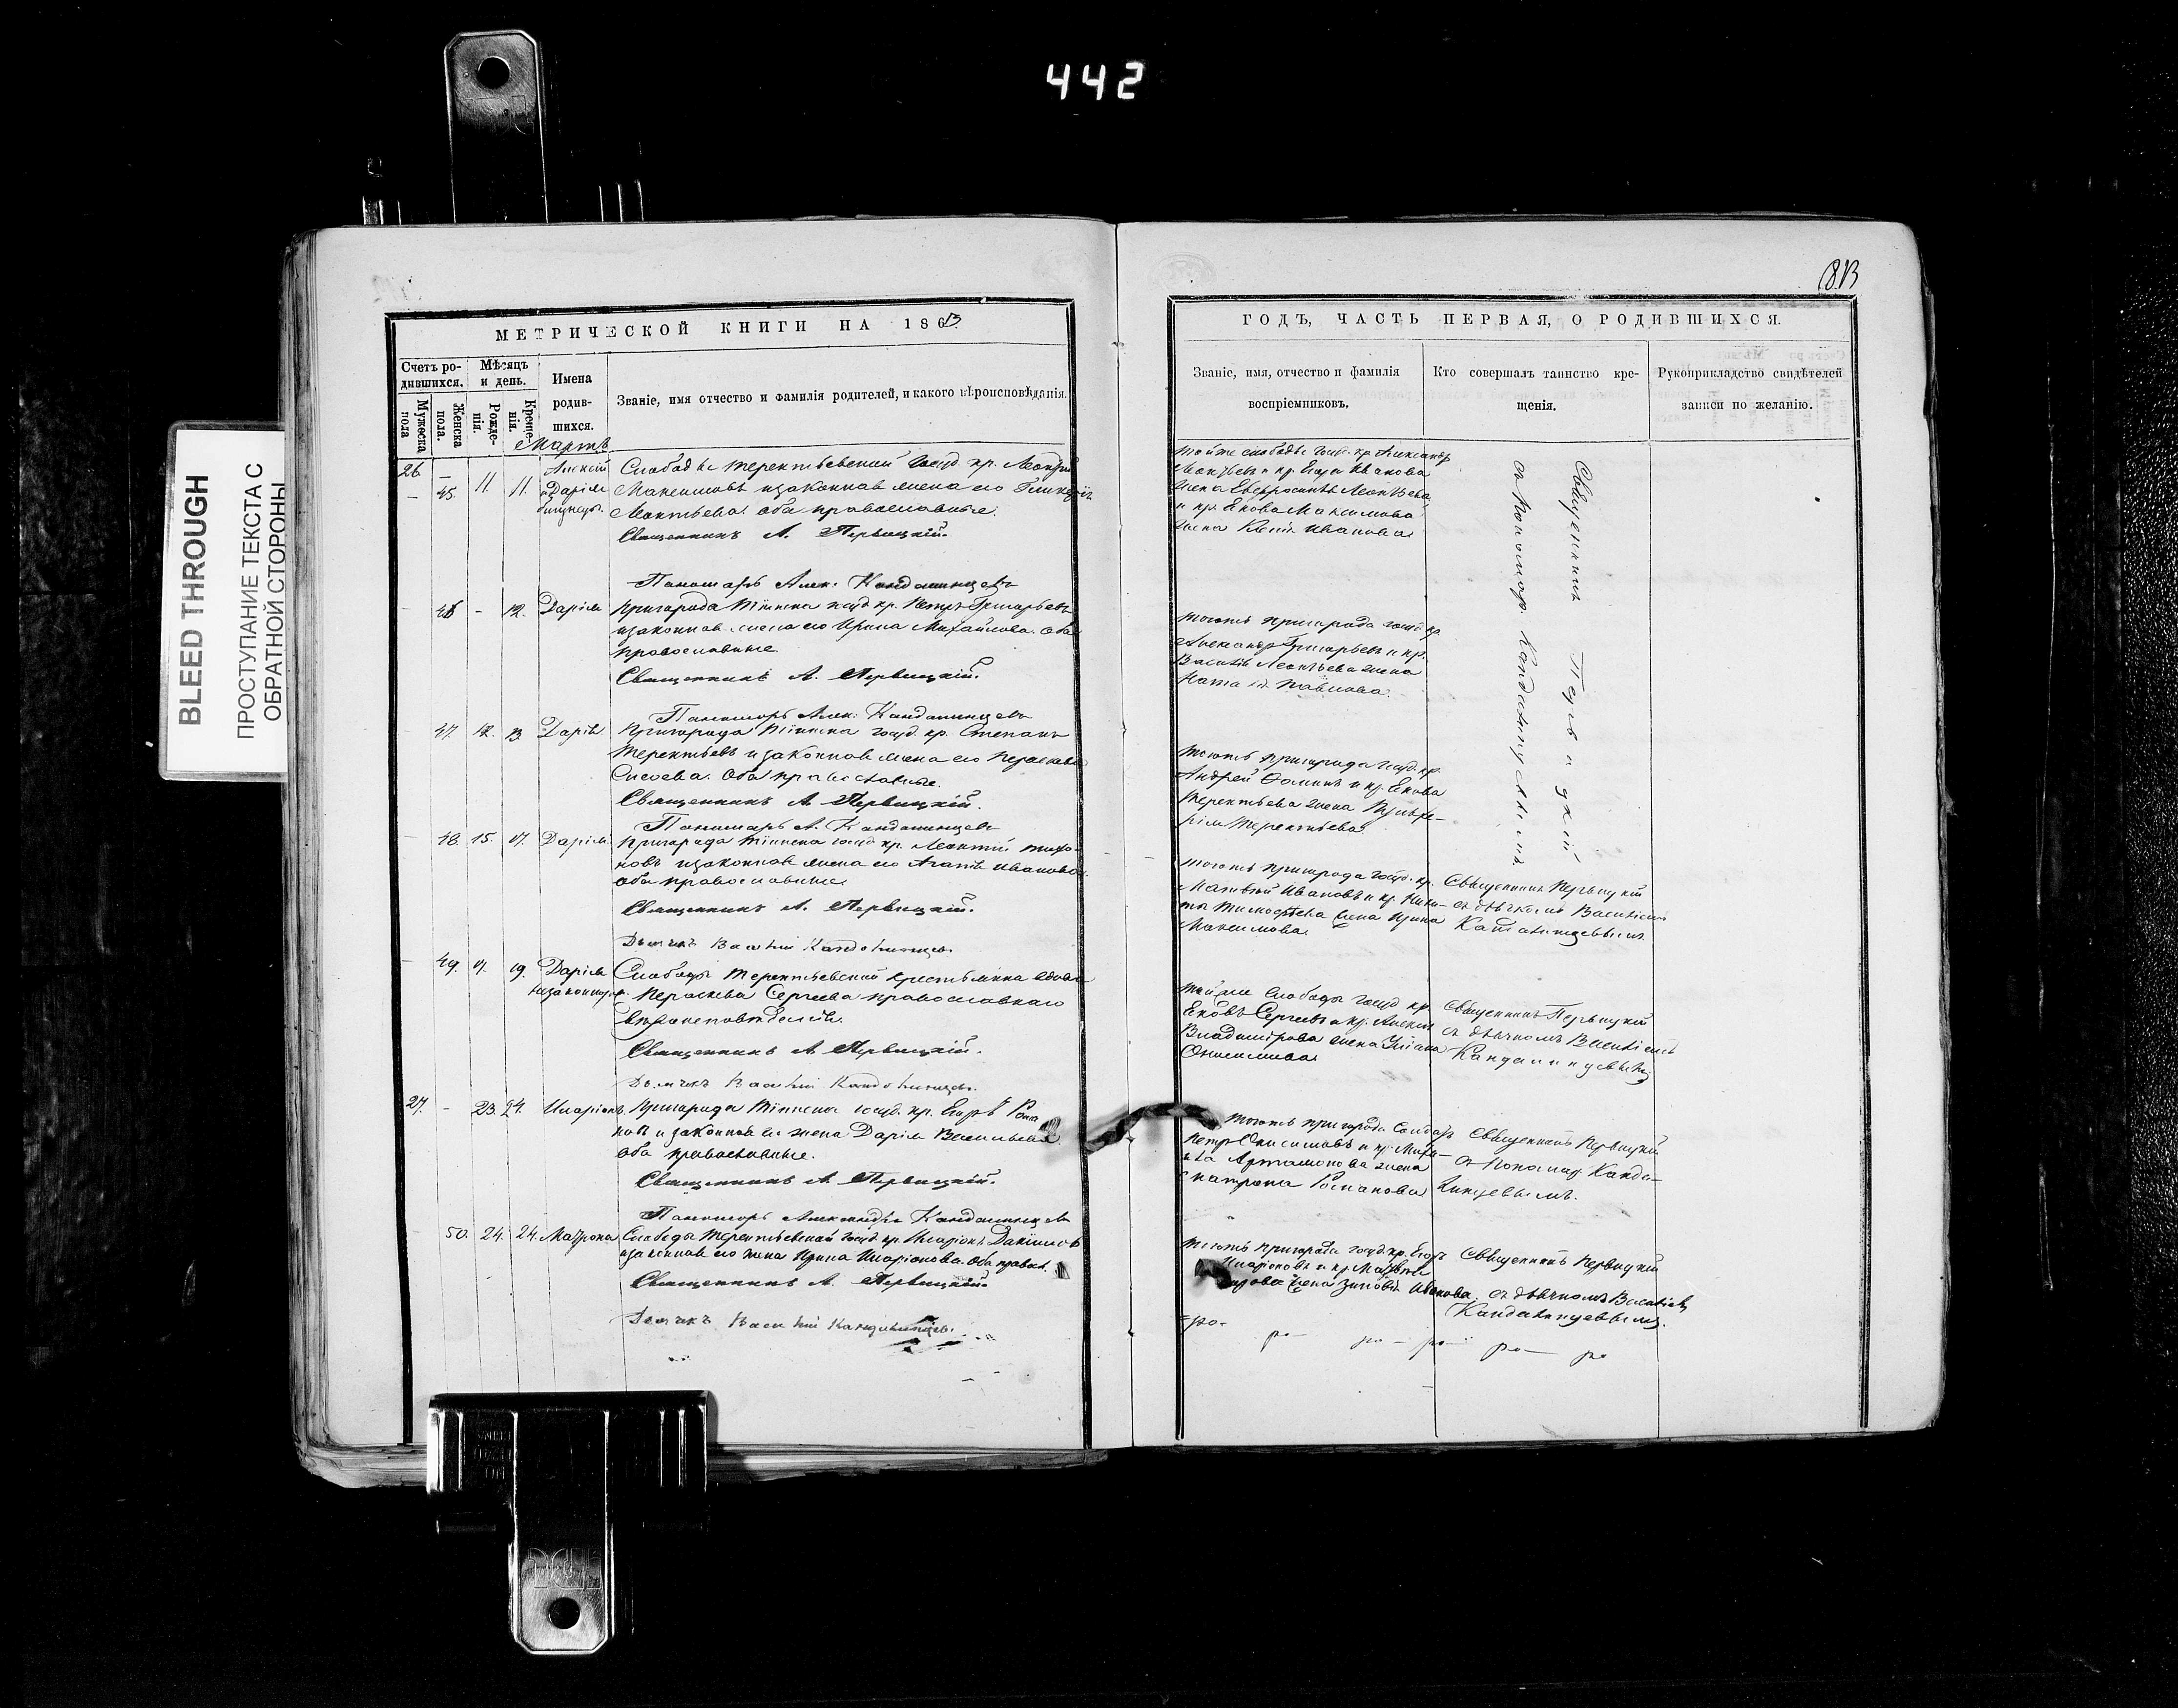 442
BLEED THROUGH
ПРОСТУПАНИЕ ТЕКСТА С
ОБРАТНОЙ СТОРОНЫ
МЕТРИЧЕСКОЙ КНИГИ НА 186
Счетъ ро-
дившихся.
Мужеска
пола
Женска
пола.
Мѣсяцъ
и день.
Рожде-
нія.
Креще-
нія.
Имена
родив-
шихся.
Званіе, имя отчество и фамилія родителей, и какого вѣроисповѣданія.
Мартъ
26. – 11. 11. Алексій Слободы Терентьевской госуд. кр.
– 45. Дарія Максимовъ и законная жена его
близнецы. Леонтьева. Оба православные.
Священникъ А. Первицкій.
Пономарь Алек. Кандалинцевъ
46 – 12. Дарія Пригорода Тіинска госуд. кр. Петръ Григорьевъ
и законная жена его Ирина Михайлова. Оба
православные.
Священникъ А. Первицкій.
Пономарь Алек. Кандалинцевъ
47. 12. 13. Дарія Пригорода Тіинска госуд. кр. Степанъ
Терентьевъ и законная жена его
Сысоева. Оба православные.
Священникъ А. Первицкій.
Пономарь А. Кандалинцевъ
48. 15. 17. Дарія Пригорода Тіинска госуд. кр. Леонтій Тихо-
новъ и законная жена его Агапія Иванова
оба православные
Священникъ А. Первицкій.
Дьячекъ Василій Кандалинцевъ
49. 17. 19. Дарія Слободы Терентьевской крестьянка вдова
незаконнор. Параскева Сергеева православнаго
вѣроисповѣданія.
Священникъ А. Первицкій.
Дьячекъ Василій Кандалинцевъ.
27. – 23. 24. Иларіонъ. Пригорода Тіинска госуд. кр. Егоръ Рома
новъ и законная его жена Дарія Васильева.
Оба православные.
Священникъ А. Первицкій.
Пономарь Александръ Кандалинцевъ
50. 24. 24. Матрона Слободы Терентьевской госуд. кр. Иларіонъ Даниловъ
и законная его жена Ирина Иларіонова. Оба правосл.
Священникъ А. Первицкій.
Дьячекъ Василій Кандалинцевъ.
ГОДЪ, ЧАСТЬ ПЕРВАЯ, О РОДИВШИХСЯ.
Званіе, имя, отчество и фамилія
воспріемниковъ.
Кто совершалъ таинство кре-
щенія.
Рукоприкладство свидѣтелей
записи по желанію.
Тойже слободы госуд. кр. Александръ
Леонтьевъ и кр. Егора Иванова
жена Евфросинія Леонтьева,
и кр. Якова Максимова
жена Иванова
Священникъ Первицкій
съ пономар. Кандалинцевымъ
тогожъ пригорода госуд. кр.
Александръ Григорьевъ и кр.
Василія Леонтьева жена
Наталія Павлова.
Тогожъ пригорода госуд. кр.
Андрей Ѳоминъ и кр. Якова
Терентьева жена
Терентьева.
тогожъ пригорода госуд. кр.
Матвѣй Ивановъ и кр. Ники-
ты Тимоѳеева жена Ирина
Максимова.
Священникъ Первицкій
съ дьячкомъ Василіемъ
Кандалинцевымъ.
Тойже слободы госуд. кр.
Яковъ Сергеевъ и кр. Алексія
Владимірова жена Уліана
Онисимова
Священникъ Первицкій
съ дьячкомъ Василіемъ
Кандалинцевымъ
Тогожъ пригорода солдатъ
Петръ Онисимовъ и кр. Миха-
ила Артамонова жена
Матрона Романова
Священникъ Первицкій
съ пономар. Канда-
линцевымъ.
Тогожъ пригорода госуд. кр. Егоръ
Иларіоновъ и кр. Матвѣя
жена Зиновія Иванова.
Священникъ Первицкій
съ дьячкомъ Василіемъ
Кандалинцевымъ.